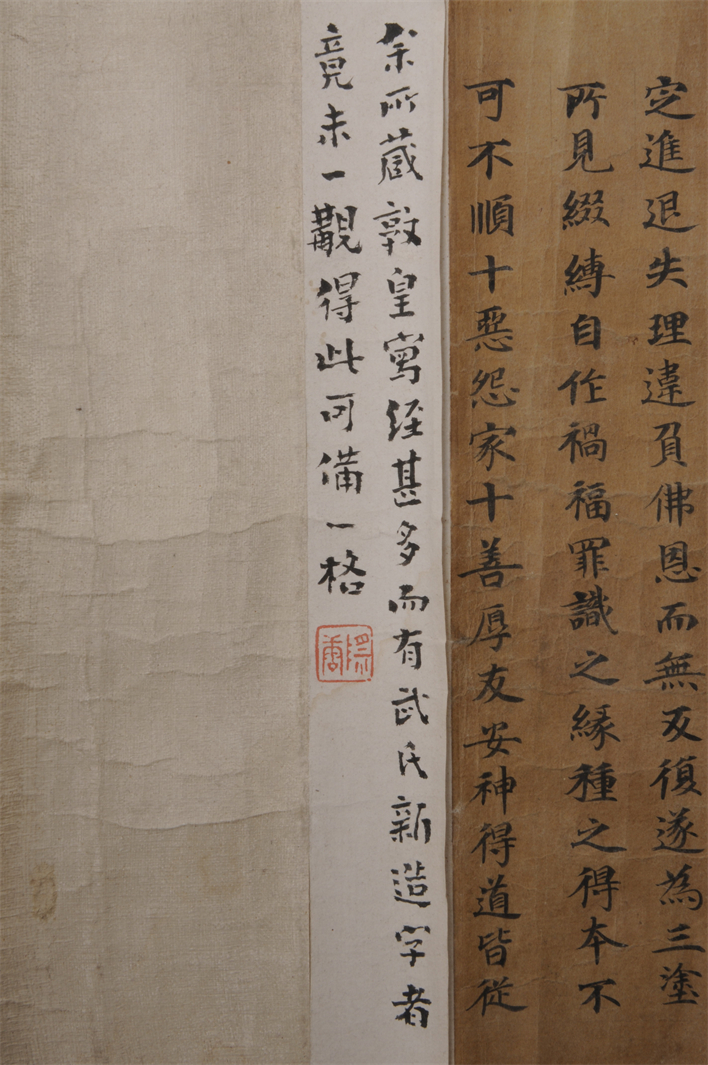 定進退失理違負佛恩而無反復遂為三塗
所見綴縛自作禍福罪識之緣種之得本不
可不順十惡怨家十善厚友安神得道皆從
余所藏敦皇寫經甚多而有武氏新造字者
竟未一覯得此可備一格